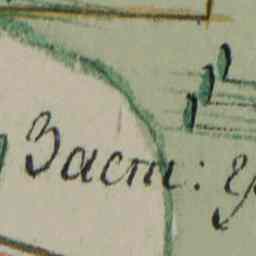 Заст: